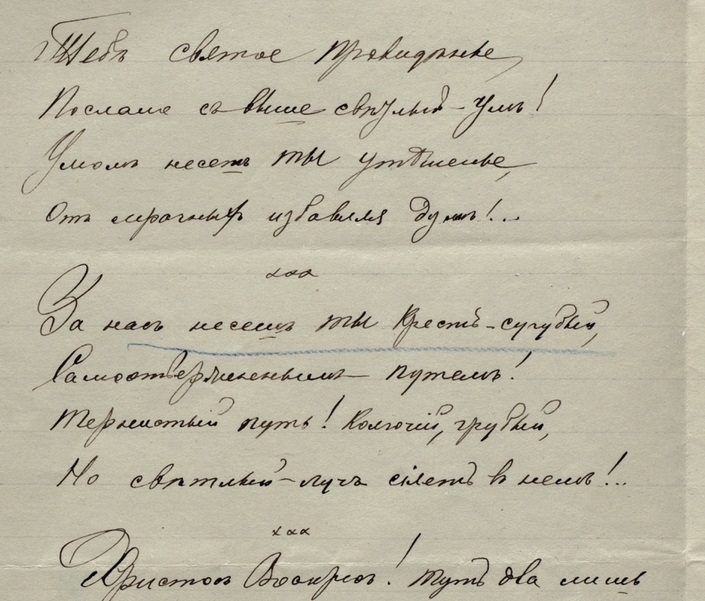 Тебѣ святое провидѣнье,
Послало съ выше свѣтлый – умъ!
Умомъ несешь ты утѣшенье,
Отъ мрачныхъ избавляя думъ!...
ххх
За насъ несешь ты крестъ – сугубый,
Самоотверженнымъ – путемъ!
Тернистый путь! Колючій, грубый,
Но свѣтлый – лучъ сіяетъ в немъ!..
ххх
Христосъ Воскресъ! тутъ два лишь